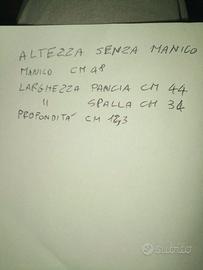 ALTEZZA SENZA MANICO
MANICO CM 48
LARGHEZZA PANCIA CM 44
" SPALLA CM 34
PROFONDITÀ CM 12,3
subito